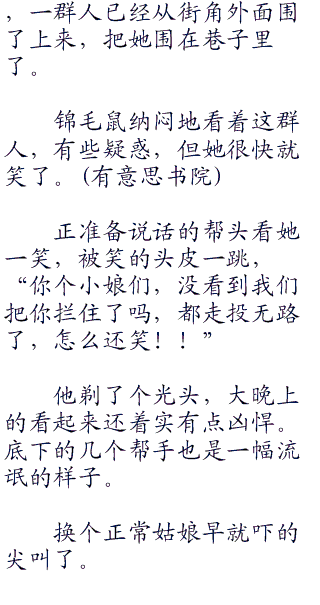 ，一群人已经从街角外面围
了上来，把她围在巷子里
了。
锦毛鼠纳闷地看着这群
人，有些疑惑，但她很快就
笑了。(有意思书院)
正准备说话的帮头看她
一笑，被笑的头皮一跳，
“你个小娘们，没看到我们
把你拦住了吗，都走投无路
了，怎么还笑！！”
他剃了个光头，大晚上
的看起来还着实有点凶悍。
底下的几个帮手也是一幅流
氓的样子。
换个正常姑娘早就吓的
尖叫了。